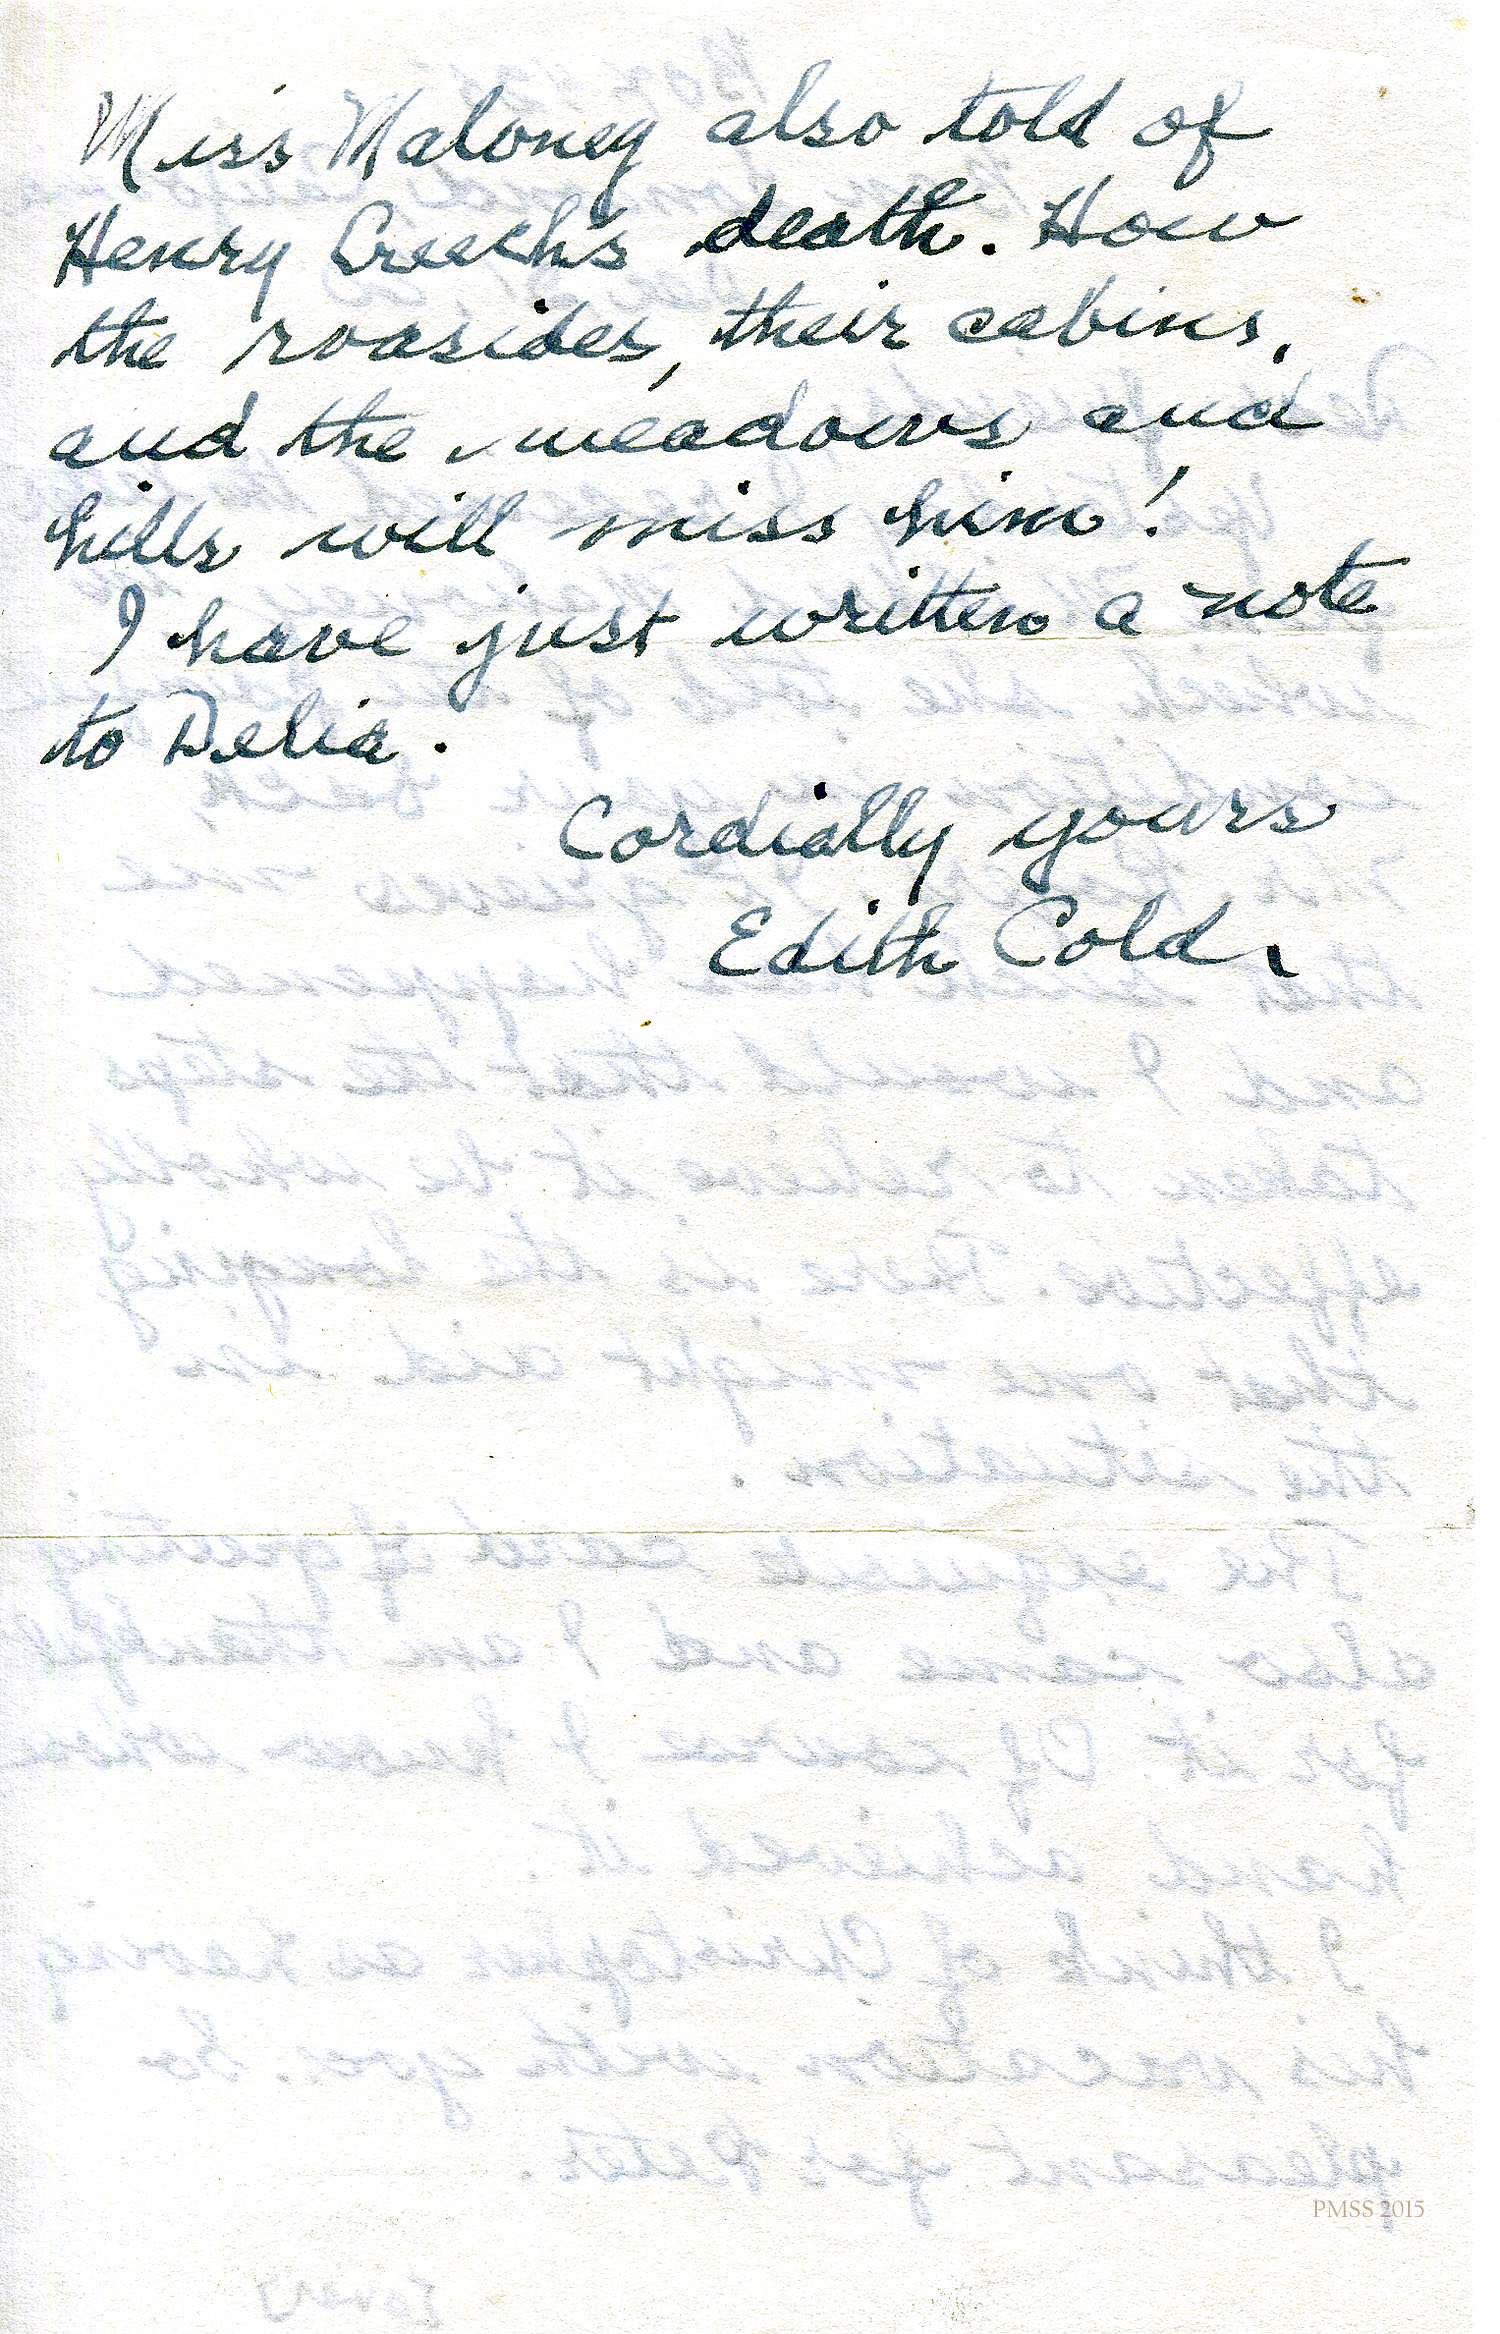 Miss Maloney also told of
Henry Creech's death. How
the roasides, their cabins,
and the meadows and
hills will miss him!
I have just written a note
to Delia.
Cordially yours
Edith Cold.
PMSS 2015